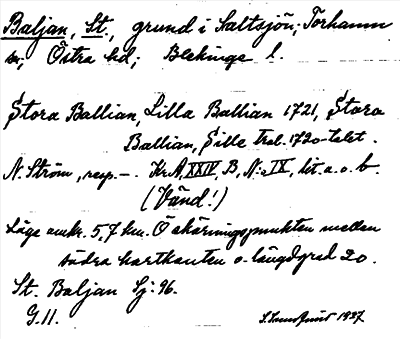 Baljan, St., grund i Saltsjön; Torhamn
sn; Östra hd; Blekinge l.
Stora Ballian, Lilla Ballian 1721, Stora
Ballian, Sille Trol. 1720-talet.
N. Ström, resp. –. Kr.A, XXIV, B, N:o IX, lit. a. o. b.
(Vänd!)
Läge omkr. 5,7 km. Ö skärningspunkten mellan
södra kartkanten o. längdgrad 20.
St. Baljan Sj: 96.
G. 11.
1927